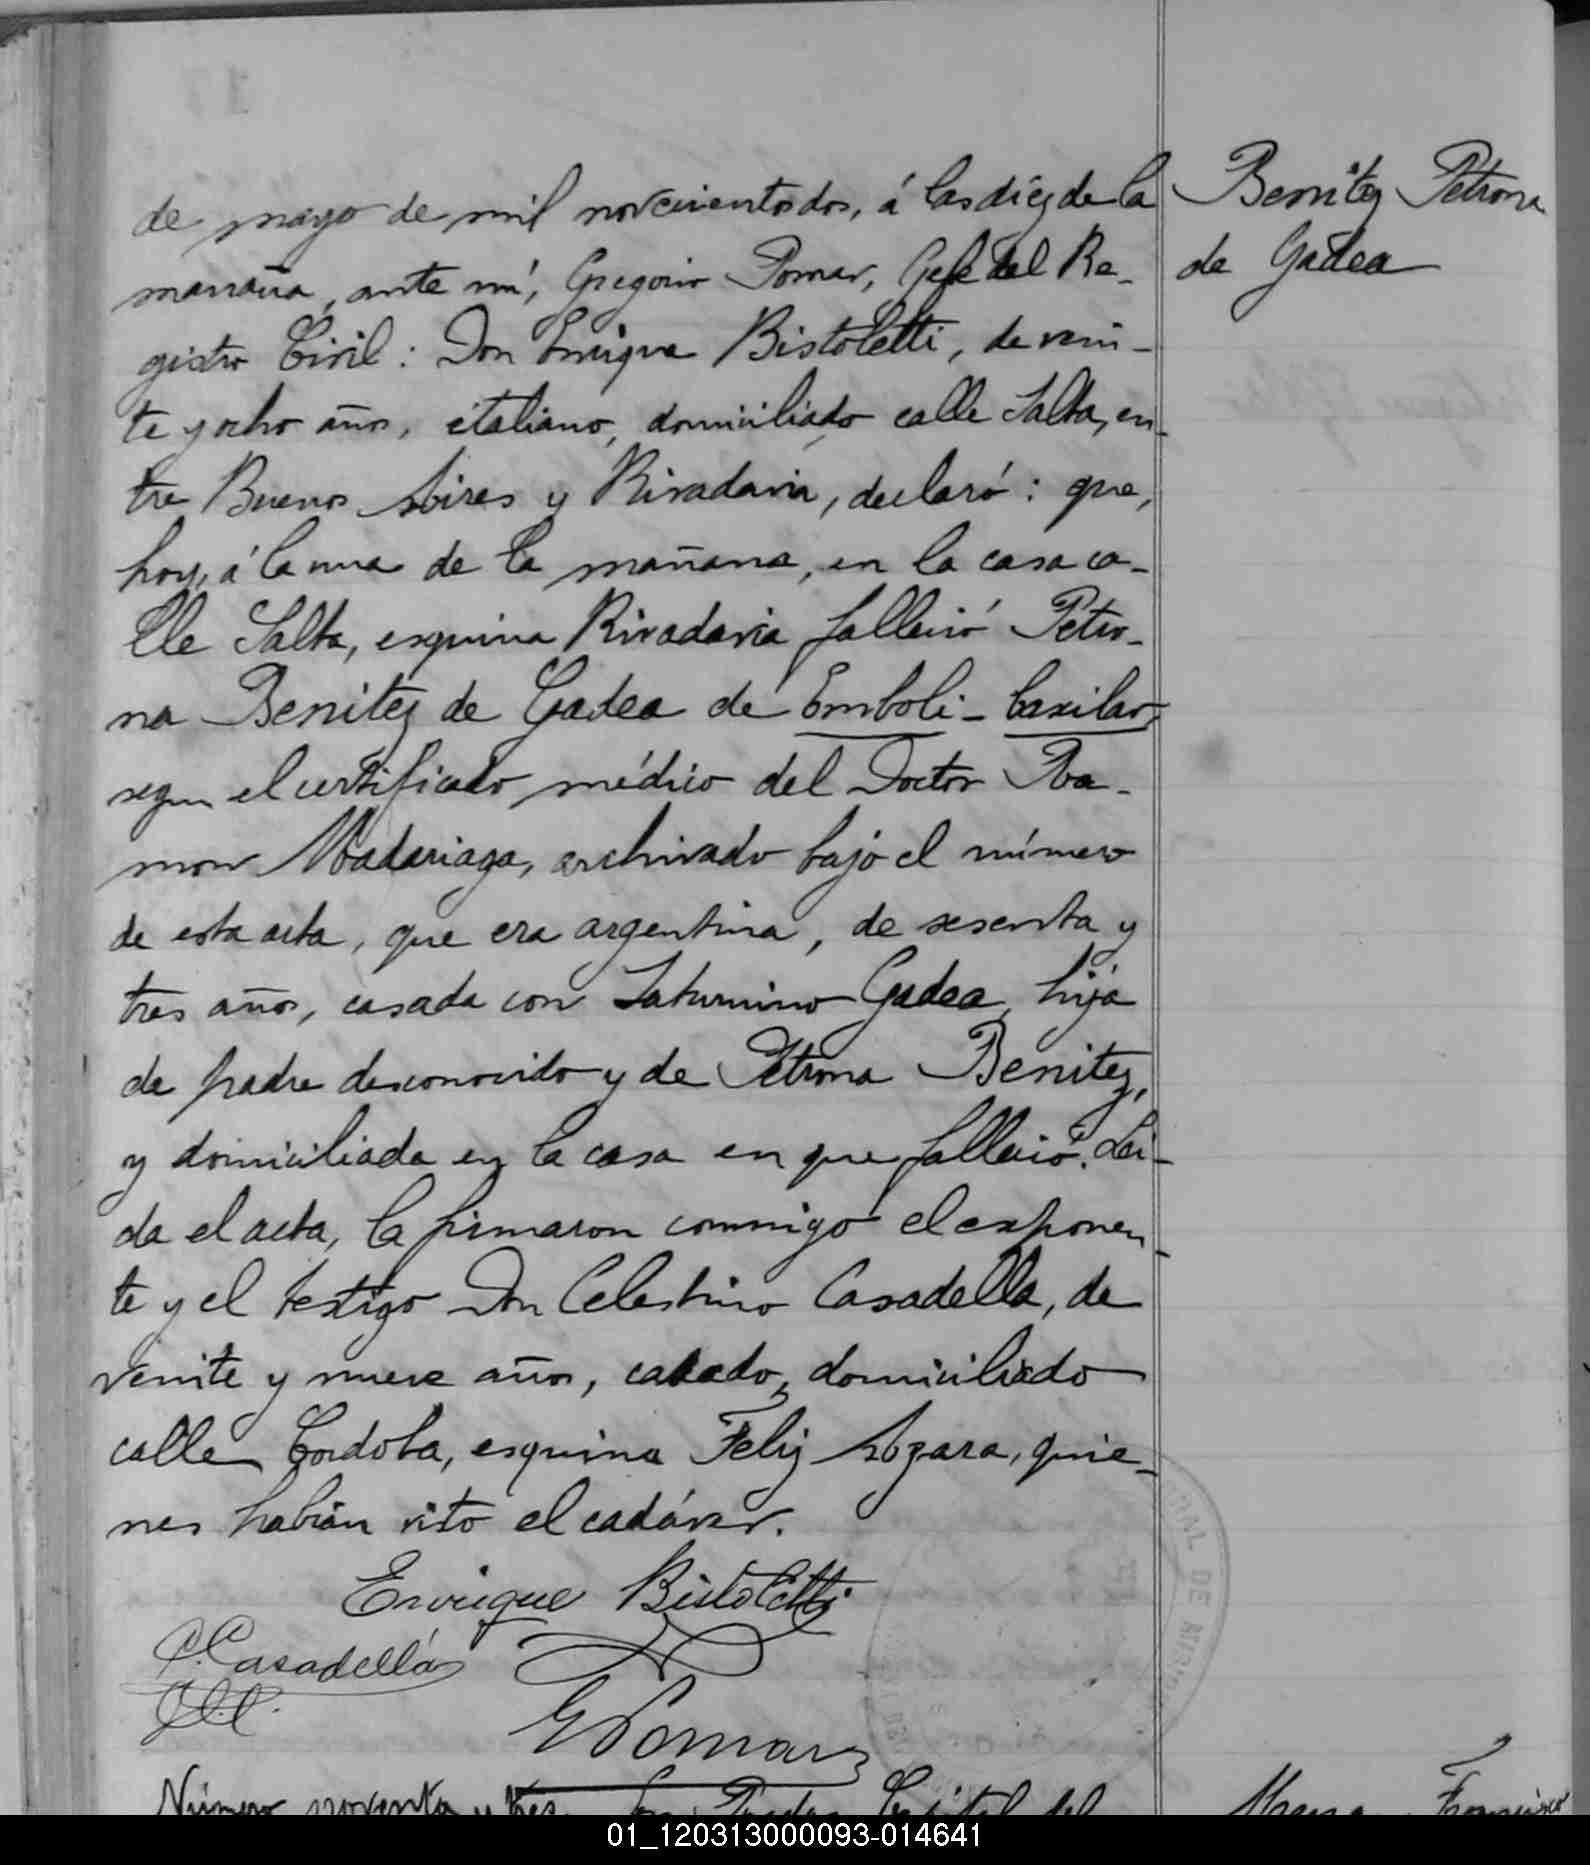 de mayo de mil novecientos dos, á las diez de la
mañana, ante mí, Gregorio Pomar, Gefe del Re-
gistro Civil: Don Enrique Bistoletti, de vein-
te y ocho años, italiano, domiciliado calle Salta, en-
tre Buenos Aires y Rivadavia, declaró: que,
hoy, á la una de la mañana, en la casa ca-
lle Salta, esquina Rivadavia falleció Petro-
na Benitez de Gadea de Emboli-baxilar,
segun el certificado médico del Doctor Ra-
mon Madariaga, archivado bajo el número
de esta acta, que era argentina, de sesenta y
tres años, casada con Saturnino Gadea, hija
de padre desconocido y de Petrona Benitez,
y domiciliada en la casa en que falleció. Lei-
da el acta, la firmaron conmigo el exponen-
te y el testigo Don Celestino Casadella, de
veinte y nueve años, casado, domiciliado
calle Cordoba, esquina Feliz Azara, quie-
nes habian visto el cadáver.
Enrique Bistoletti
C. Casadellá
G Pomar
Número noventa y tres. En Capital del
Benitez Petrona
de Gadea
Francisco
01_120313000093-014641